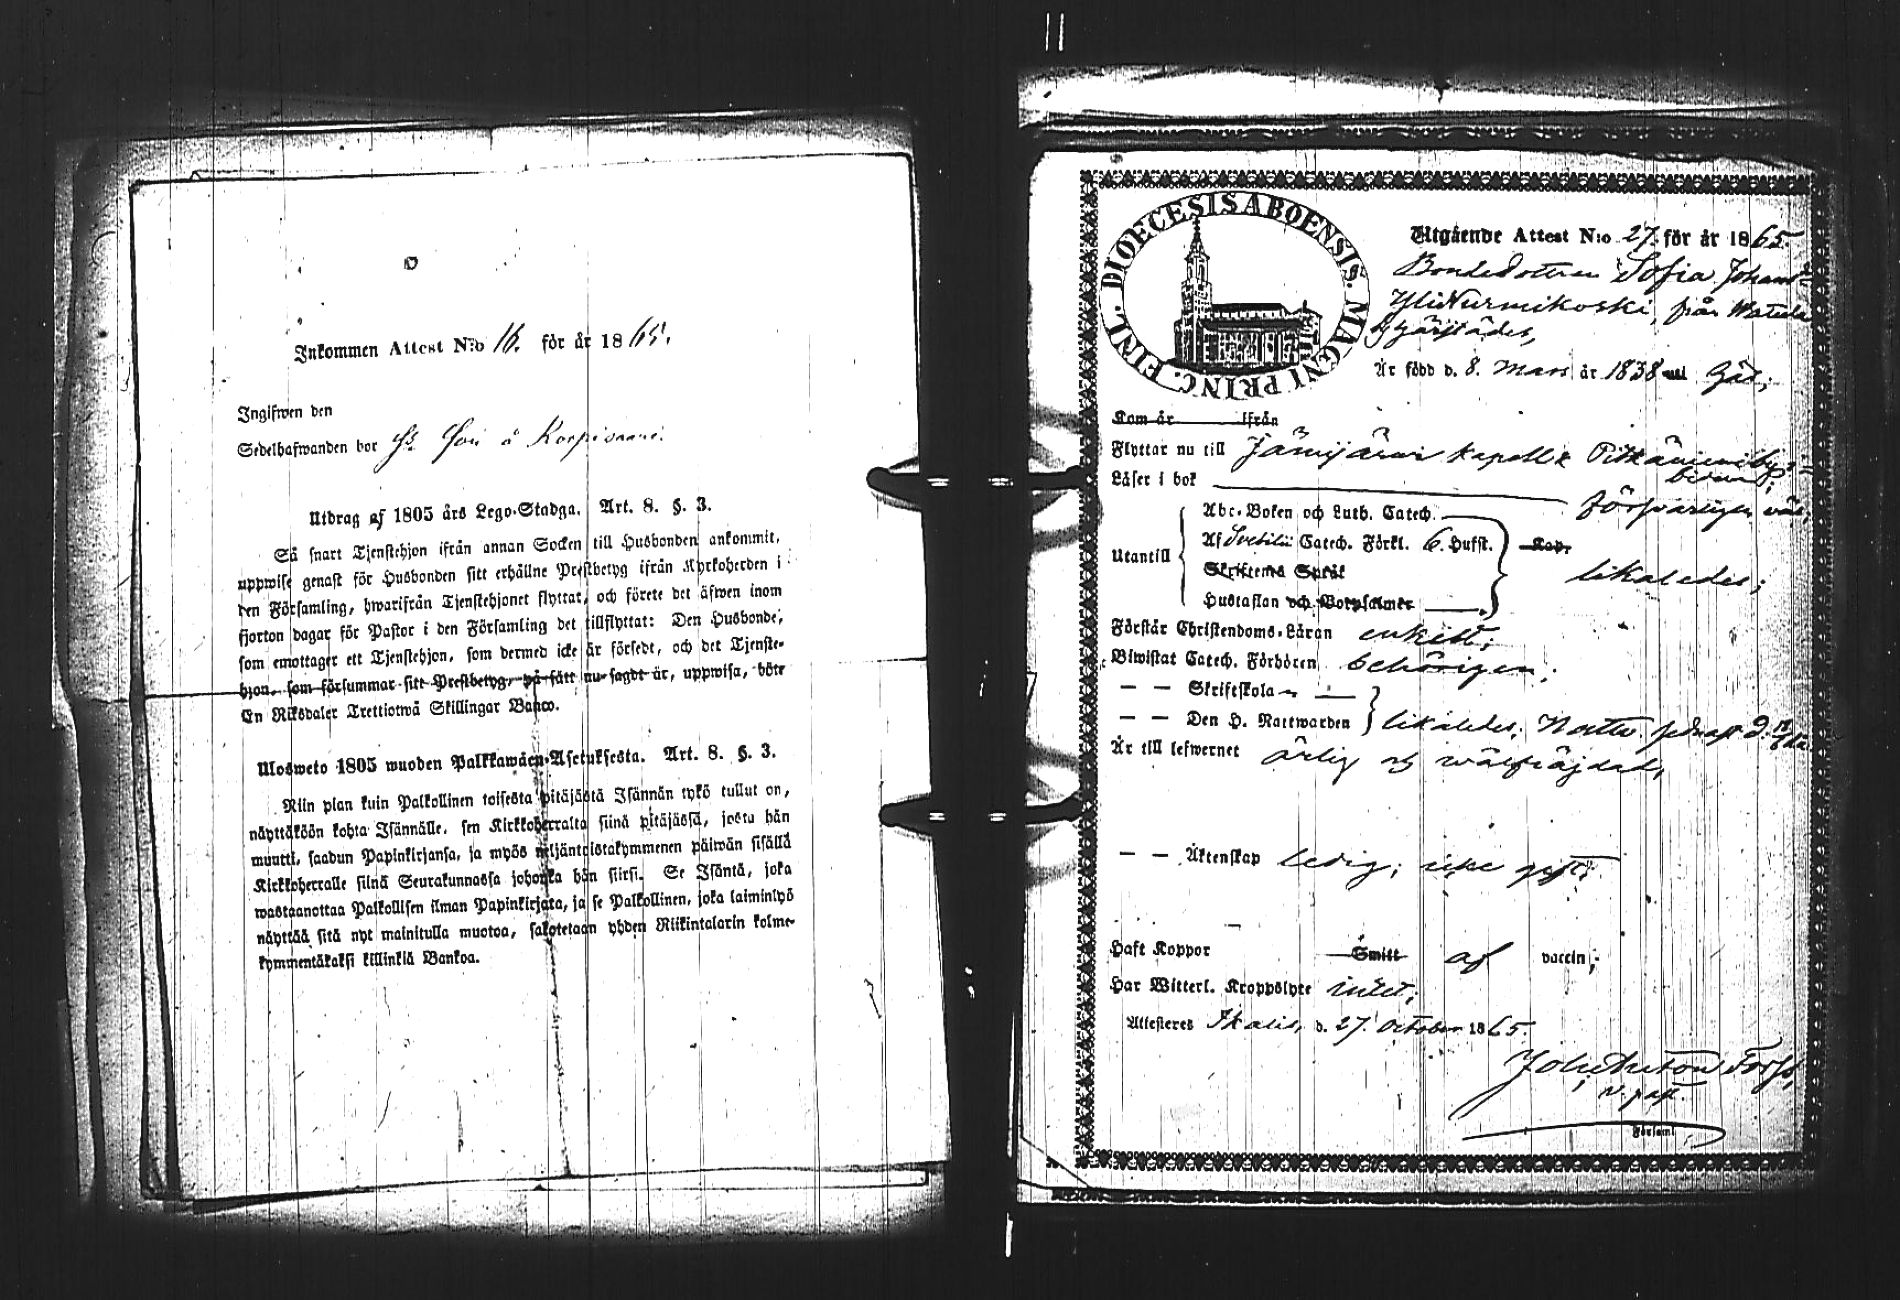 Inkommen Attest N:o 16. för år 1865.
Ingifwen den
Sedelhafwanden bor
Utdrag af 1805 års Lego-Stadga. Art. 8. §. 3.
Så snart Tjenstehjon ifrån annan Socken till Husbonden ankommit,
uppwise genast för Husbonden sitt erhållne Prestbetyg ifrån Kyrkoherden i
den Församling, hwarifrån Tjenstehjonet flyttat, och förete det äfwen inom
fjorton dagar för Pastor i den Församling det tillflyttat: Den Husbonde,
som emottager ett Tjenstehjon, som dermed icke är försedt, och det Tjenste-
hjon, som försummar sitt Prestbetyg, på sätt nu sagdt är, uppwisa, böte
En Riksdaler Trettiotwå Skillingar Banco.
Ulosweto 1805 wuoden Palkkawäen-Asetuksesta. Art. 8. §. 3.
Niin pian kuin Palkollinen toisesta pitäjästä Isännän tykö tullut on,
näyttäköön kohta Isännälle, sen Kirkkoherralta siinä pitäjässä, josta hän
muutti, saadun Papinkirjansa, ja myös neljäntoistakymmenen päiwän sisällä
Kirkkoherralle siinä Seurakunnassa johonka hän siirsi. Se Isäntä, joka
wastaanottaa Palkollisen ilman Papinkirjata, ja se Palkollinen, joka laiminlyö
näyttää sitä nyt mainitulla muotoa, sakotetaan yhden Riikintalarin kolme-
kymmentäkaksi killinkiä Bankoa.
DIOECESIS ABOENSIS. MAGNI PRINC. FINL.
Utgående Attest N:o 27. för år 1865.
Bondedottren Sofia Johansd:r
YliNurmikoski, från Watula
by härstädes,
Är född d. 8. Mars år 1838
Kom år ifrån
Flyttar nu till Jämijärvi kapell & Pitkäniemi by;
Läser i bok
försvarligen väl;
Abc-Boken och Luth. Catech.
Utantill
Af Svebilii Catech. Förkl. 6. Hufst.
Kap.
Skriftens Språk
likaledes;
Hustaflan och Botpsalmer
Förstår Christendoms-Läran enkelt;
Biwistat Catech. Förhören behörigen;
— — Skriftskola
— — Den H. Nattwarden likaledes;
Är till lefwernet ärlig och wälfräjdad,
— — Äktenskap ledig; icke gift;
Haft Koppor Smitt af vaccin;
Har Witterl. Kroppslyte intet;
Attesteras Ikalis, d. 27. October 1865.
Joh. Anton Forss,
v. past.
Församl